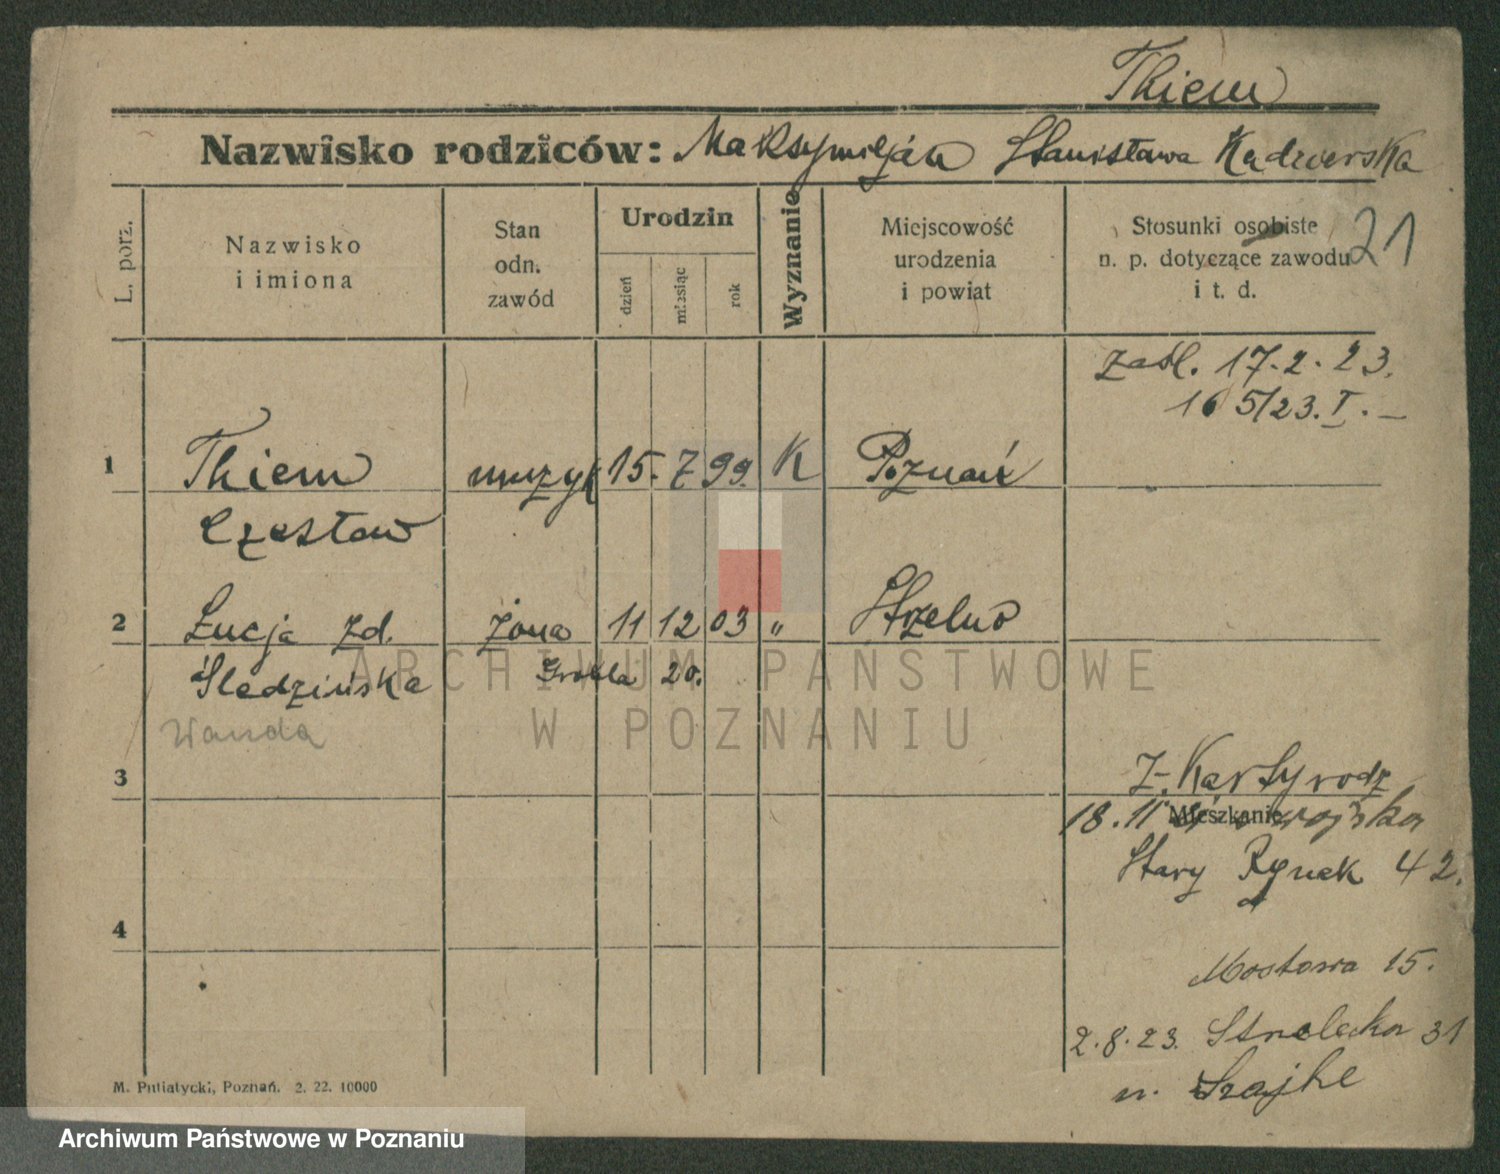 Thiem
Nazwisko rodziców: Maksymiljan Stanisława Kędzierska
L. porz.
Nazwisko i imiona
Stan odn. zawód
Urodzin
dzień
miesiąc
rok
Wyznanie
Miejscowość urodzenia i powiat
Stosunki osobiste n. p. dotyczące zawodu i t. d.
21
zaśl. 17.2.23.
165/23.I.—
1 Thiem muzyk 15. 7 99. K Poznań
Czesław
2 Łucja zd. żona 11 12 03 " Strzelno
Śledzińska Grobla 20.
Wanda
ARCHIWUM PAŃSTWOWE
W POZNANIU
3
Z. Karty rodz
18.11
Mieszkanie
Stary Rynek 42.
4
Mostowa 15.
2.8.23. Strzelecka 31
n. Szajke
M. Putiatycki, Poznań. 2. 22. 10000
Archiwum Państwowe w Poznaniu